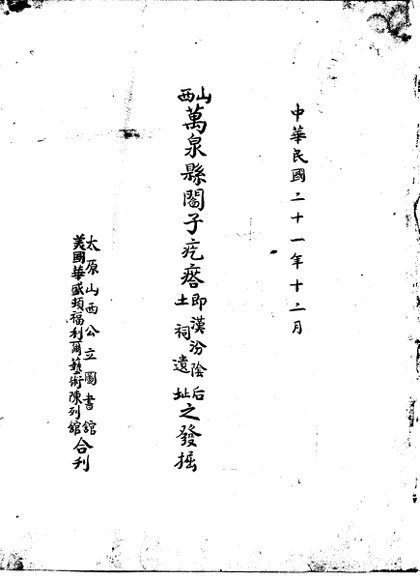 中華民國二十一年十二月
山西萬泉縣閻子疙瘩即漢汾陰后土祠遺址之發掘
太原山西公立圖書館
美國華盛頓福利爾藝術陳列館
合刊